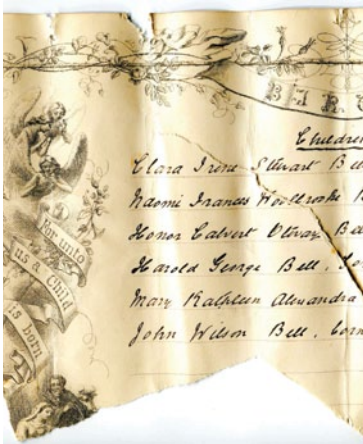 BIR
Children
Clara Irene Stewart Bell
Naomi Frances B
Honor Calvert Otway Bell
Harold George Bell.
Mary Kathleen Alexandra
John Wilson Bell. born
For unto
us a Child
is born